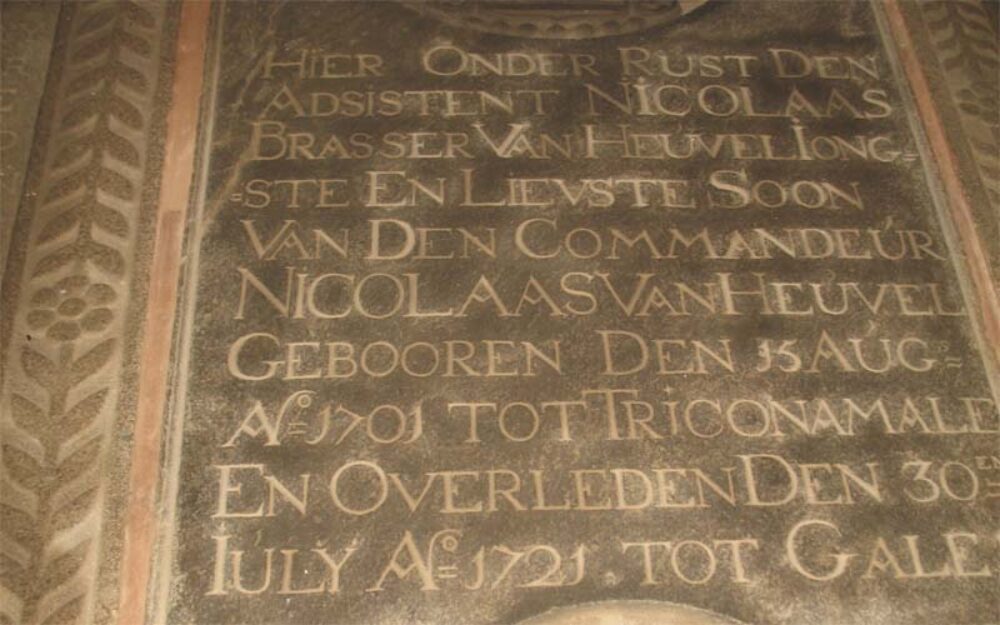 HIER ONDER RUST DEN
ADSISTENT NICOLAAS
BRASSER VAN HEUVEL IONG=
=STE EN LIEVSTE SOON
VAN DEN COMMANDEUR
NICOLAAS VAN HEUVEL
GEBOOREN DEN 15 AUG=
Aº= 1701 TOT TRICONAMALE
EN OVERLEDEN DEN 30=EN
IULY Aº= 1721 TOT GALE